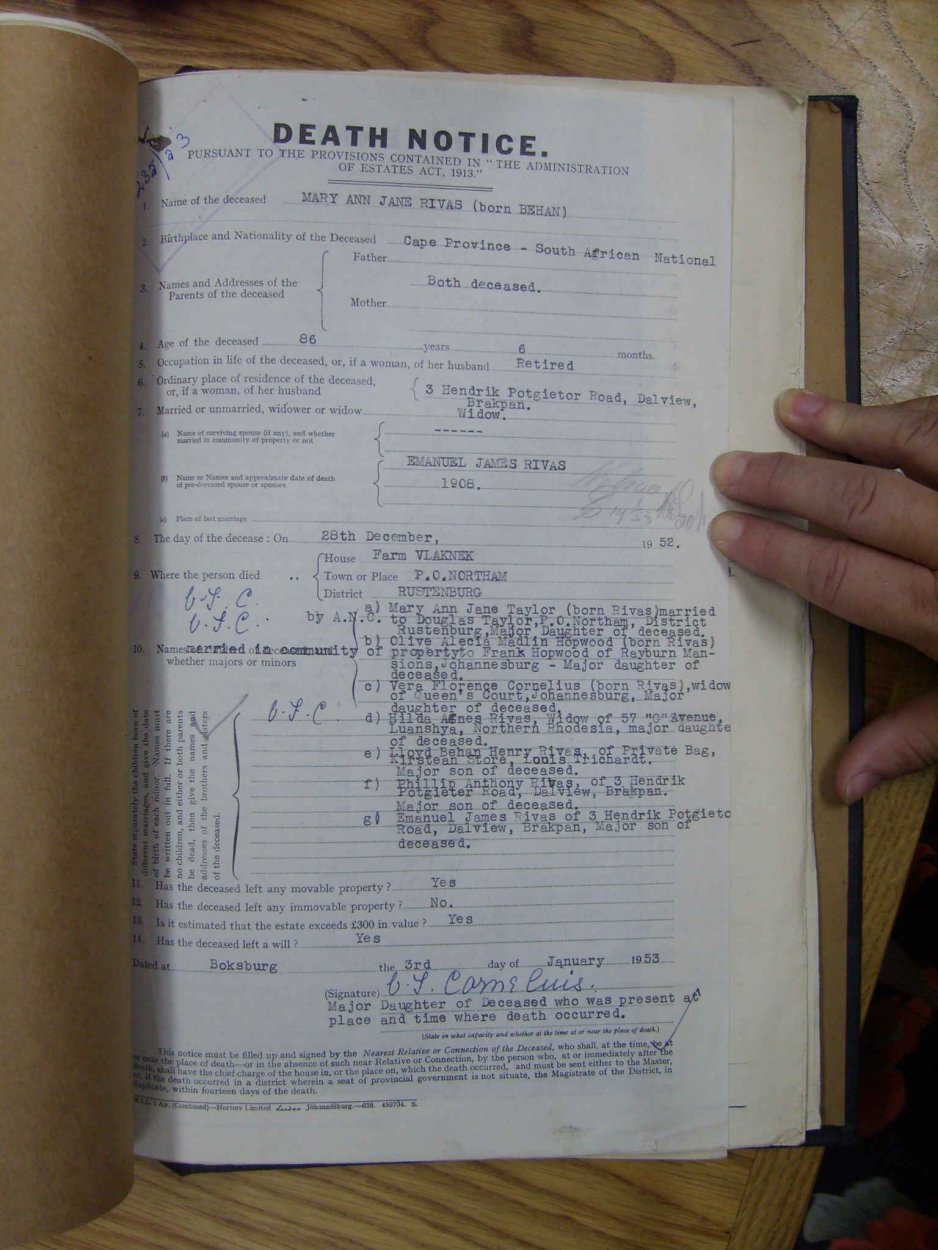 235/23
DEATH NOTICE.
PURSUANT TO THE PROVISIONS CONTAINED IN "THE ADMINISTRATION
OF ESTATES ACT, 1913."
1. Name of the deceased MARY ANN JANE RIVAS (born BEHAN)
2. Birthplace and Nationality of the Deceased Cape Province - South African National
3. Names and Addresses of the Parents of the deceased
Father
Both deceased.
Mother
4. Age of the deceased 86 years 6 months.
5. Occupation in life of the deceased, or, if a woman, of her husband Retired
6. Ordinary place of residence of the deceased, or, if a woman, of her husband
3 Hendrik Potgietor Road, Dalview,
Brakpan.
7. Married or unmarried, widower or widow Widow.
(a) Name of surviving spouse (if any), and whether married in community of property or not ------
(b) Name or Names and approximate date of death of pre-deceased spouse or spouses
EMANUEL JAMES RIVAS
1908.
(c) Place of last marriage
8. The day of the decease : On 28th December, 1952.
9. Where the person died ..
House Farm VLAKNEK
Town or Place P.O.NORTHAM
District RUSTENBURG
V.F.C.
V.F.C.
10. Names
whether majors or minors
a) Mary Ann Jane Taylor (born Rivas)married
by A.N.C. to Douglas Taylor,P.O.Northam, District
Rustenburg,Major Daughter of deceased.
b) Olive Alecia Madlin Hopwood (born Rivas)
married in community of property to Frank Hopwood of Rayburn Man-
sions,Johannesburg - Major daughter of
deceased.
c) Vera Florence Cornelius (born Rivas),widow
of Queen's Court,Johannesburg, Major
daughter of deceased,
V.F.C.
d) Hilda Agnes Rivas, Widow of 57 "G" Avenue,
Luanshya, Northern Rhodesia, major daughte
of deceased.
e) Lloyd Behan Henry Rivas, of Private Bag,
Kirstean Store, Louis Trichardt.
Major son of deceased.
f) Phillip Anthony Rivas, of 3 Hendrik
Potgieter Road, Dalview, Brakpan.
Major son of deceased.
g) Emanuel James Rivas of 3 Hendrik Potgietc
Road, Dalview, Brakpan, Major son of
deceased.
State separately the children born of
different marriages, and give the date
of birth of each minor. Names must
be written out in full. If there are
no children, and either or both parents
be dead, then give the names and
addresses of the brothers and sisters
of the deceased.
11. Has the deceased left any movable property ? Yes
12. Has the deceased left any immovable property ? No.
13. Is it estimated that the estate exceeds £300 in value ? Yes
14. Has the deceased left a will ? Yes
Dated at Boksburg the 3rd day of January 1953
(Signature) V.F. Cornelius.
Major Daughter of Deceased who was present at
place and time where death occurred.
(State in what capacity and whether at the time at or near the place of death.)
This notice must be filled up and signed by the Nearest Relative or Connection of the Deceased, who shall, at the time, be at
or near the place of death—or in the absence of such near Relative or Connection, by the person who, at or immediately after the
death, shall have the chief charge of the house in, or the place on, which the death occurred, and must be sent either to the Master,
or, if the death occurred in a district wherein a seat of provincial government is not situate, the Magistrate of the District, in
duplicate, within fourteen days of the death.
(Combined)—Hortors Limited Johannesburg.—628. 489734. S.